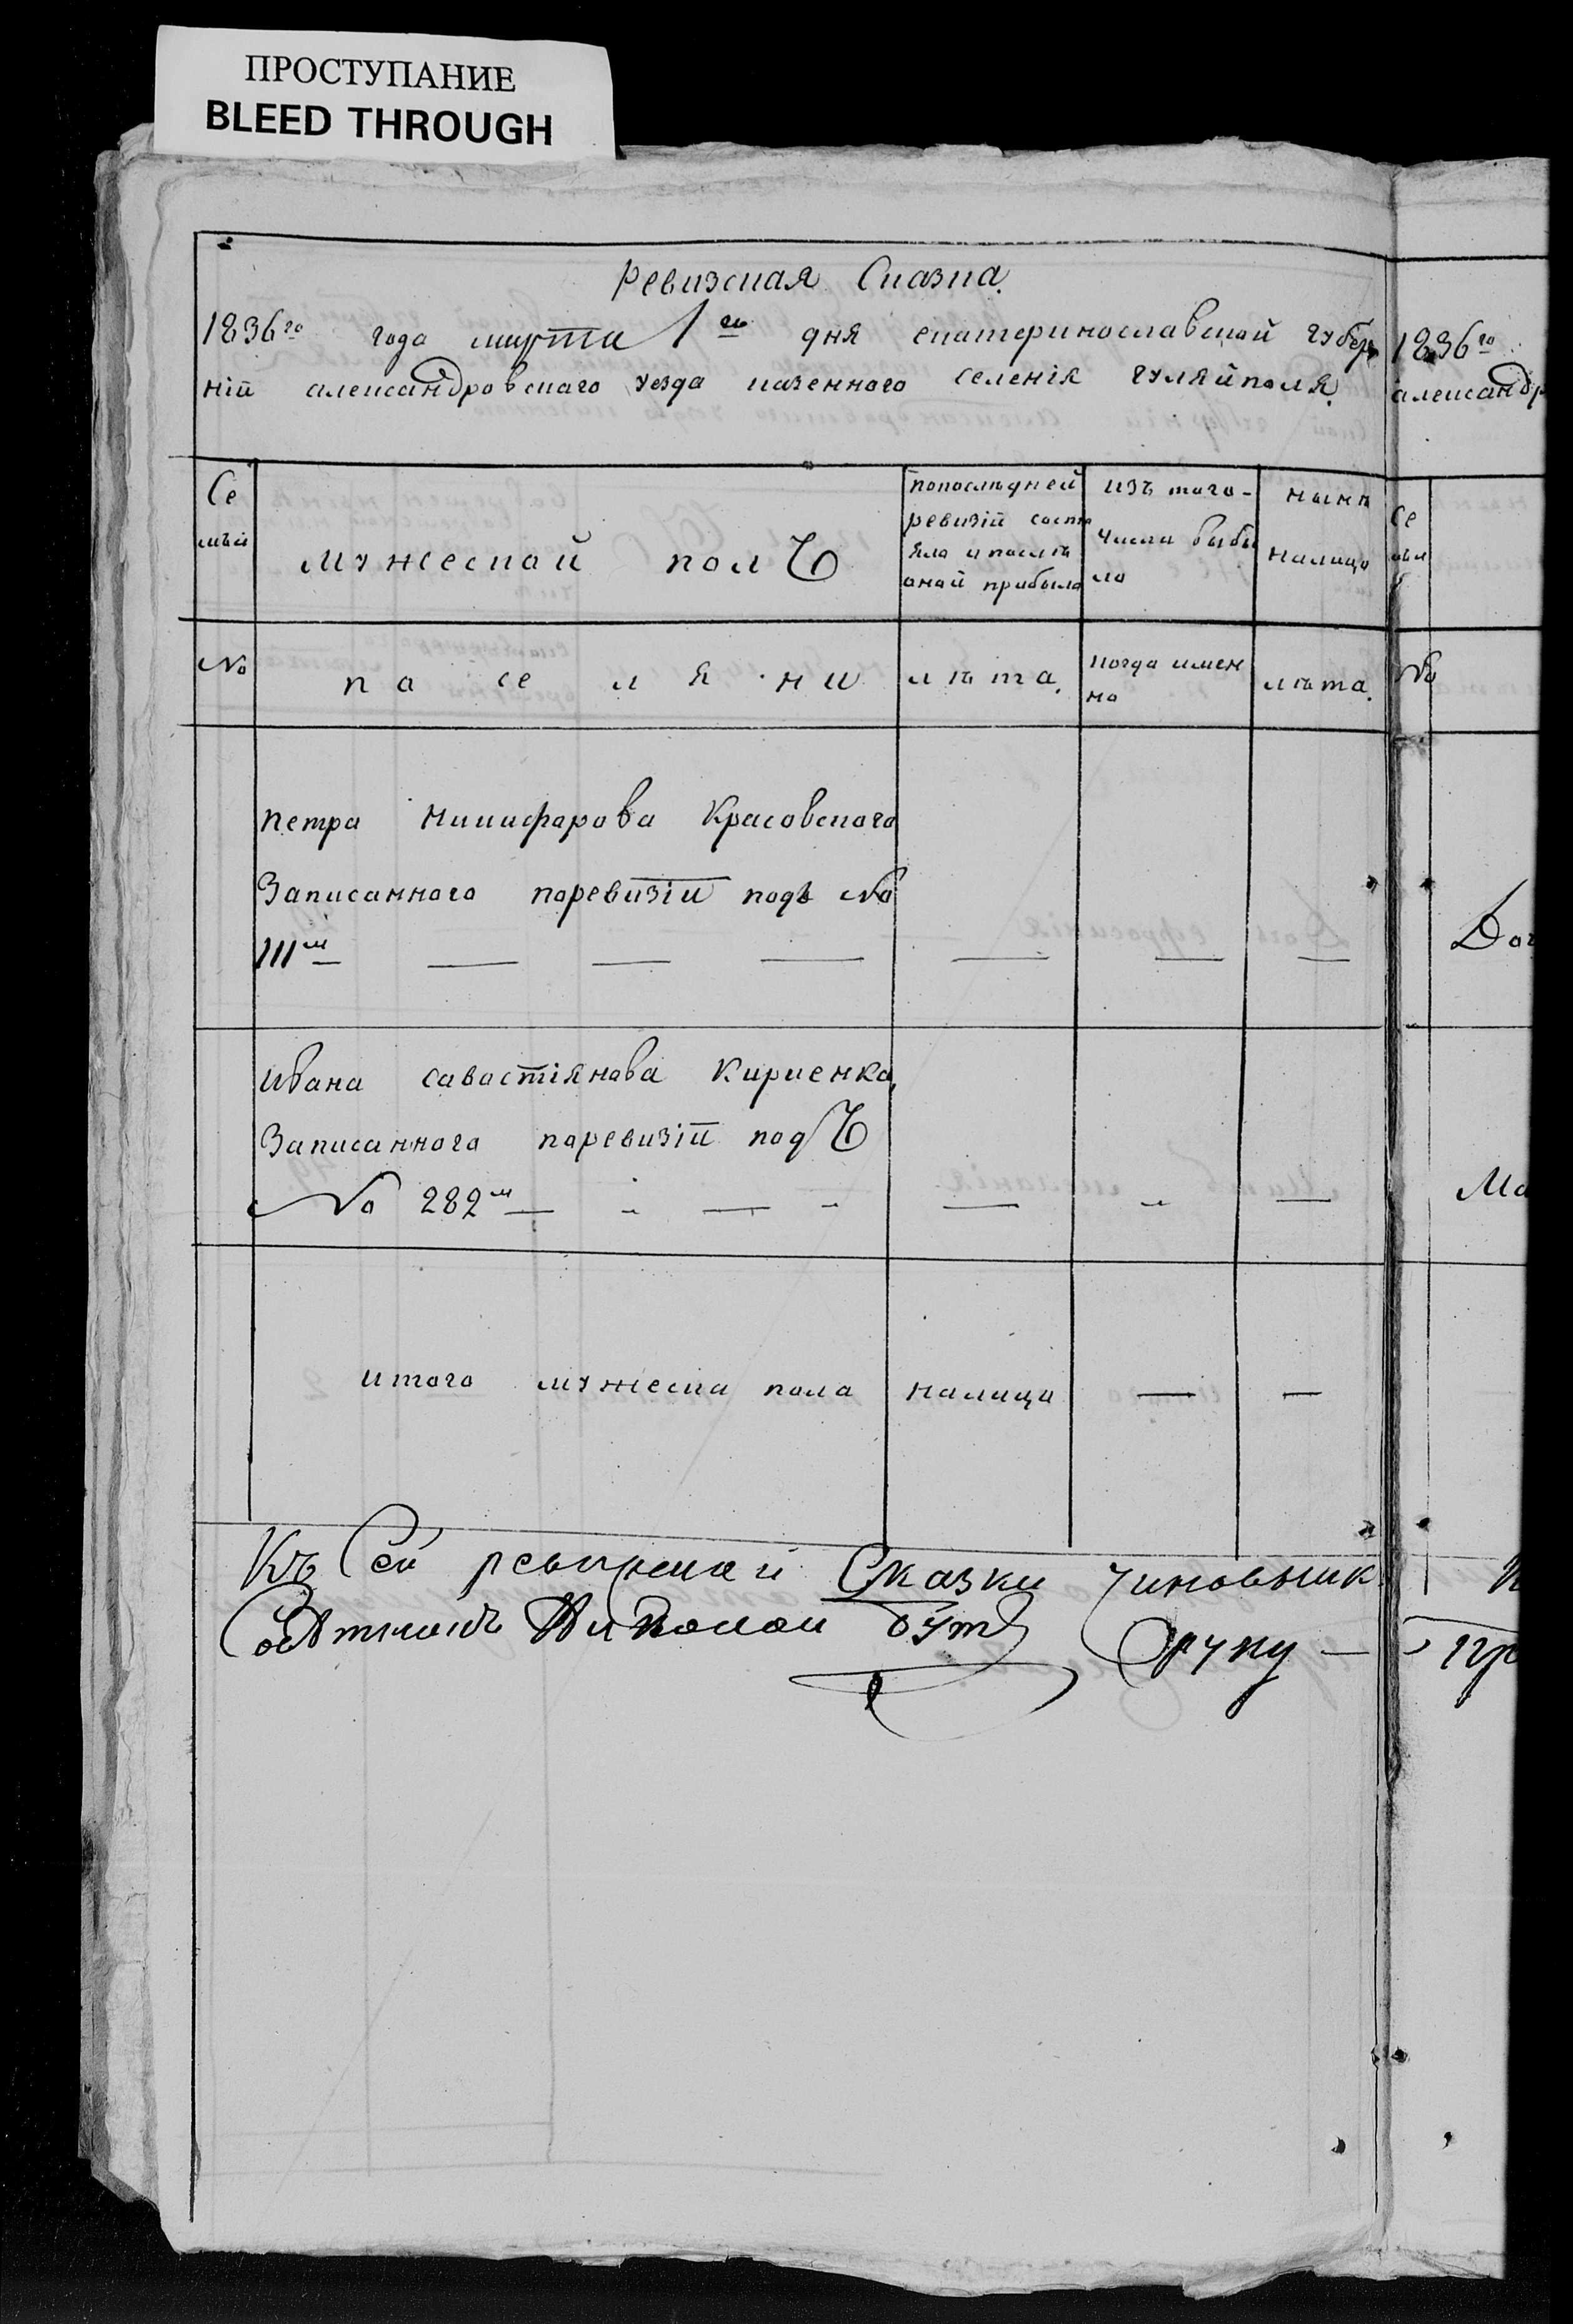 ПРОСТУПАНИЕ
BLEED THROUGH
Ревизская Сказка.
1836го года марта 1го дня екатеринославской губер
ній александровскаго уезда казенного селенія гуляйполя.
Се
мьи
мужеской полъ
попоследней
ревизій состо
яло и послѣ
оной прибыло
изъ того-
числа выбы
ло
нынѣ
налицо
№
по се ля ни
лѣта.
когда имен
но
лѣта.
петра никифарова Красовского
Записанного поревизіи подъ №
111м
ивана савостіянова Кириенка,
Записанного поревизій подъ
№ 282м
итого мужеска пола налицо
Къ Сей ревизской Сказки чиновник
бутъ
Руку
1836го
александр
Се
№
Доч
Ма